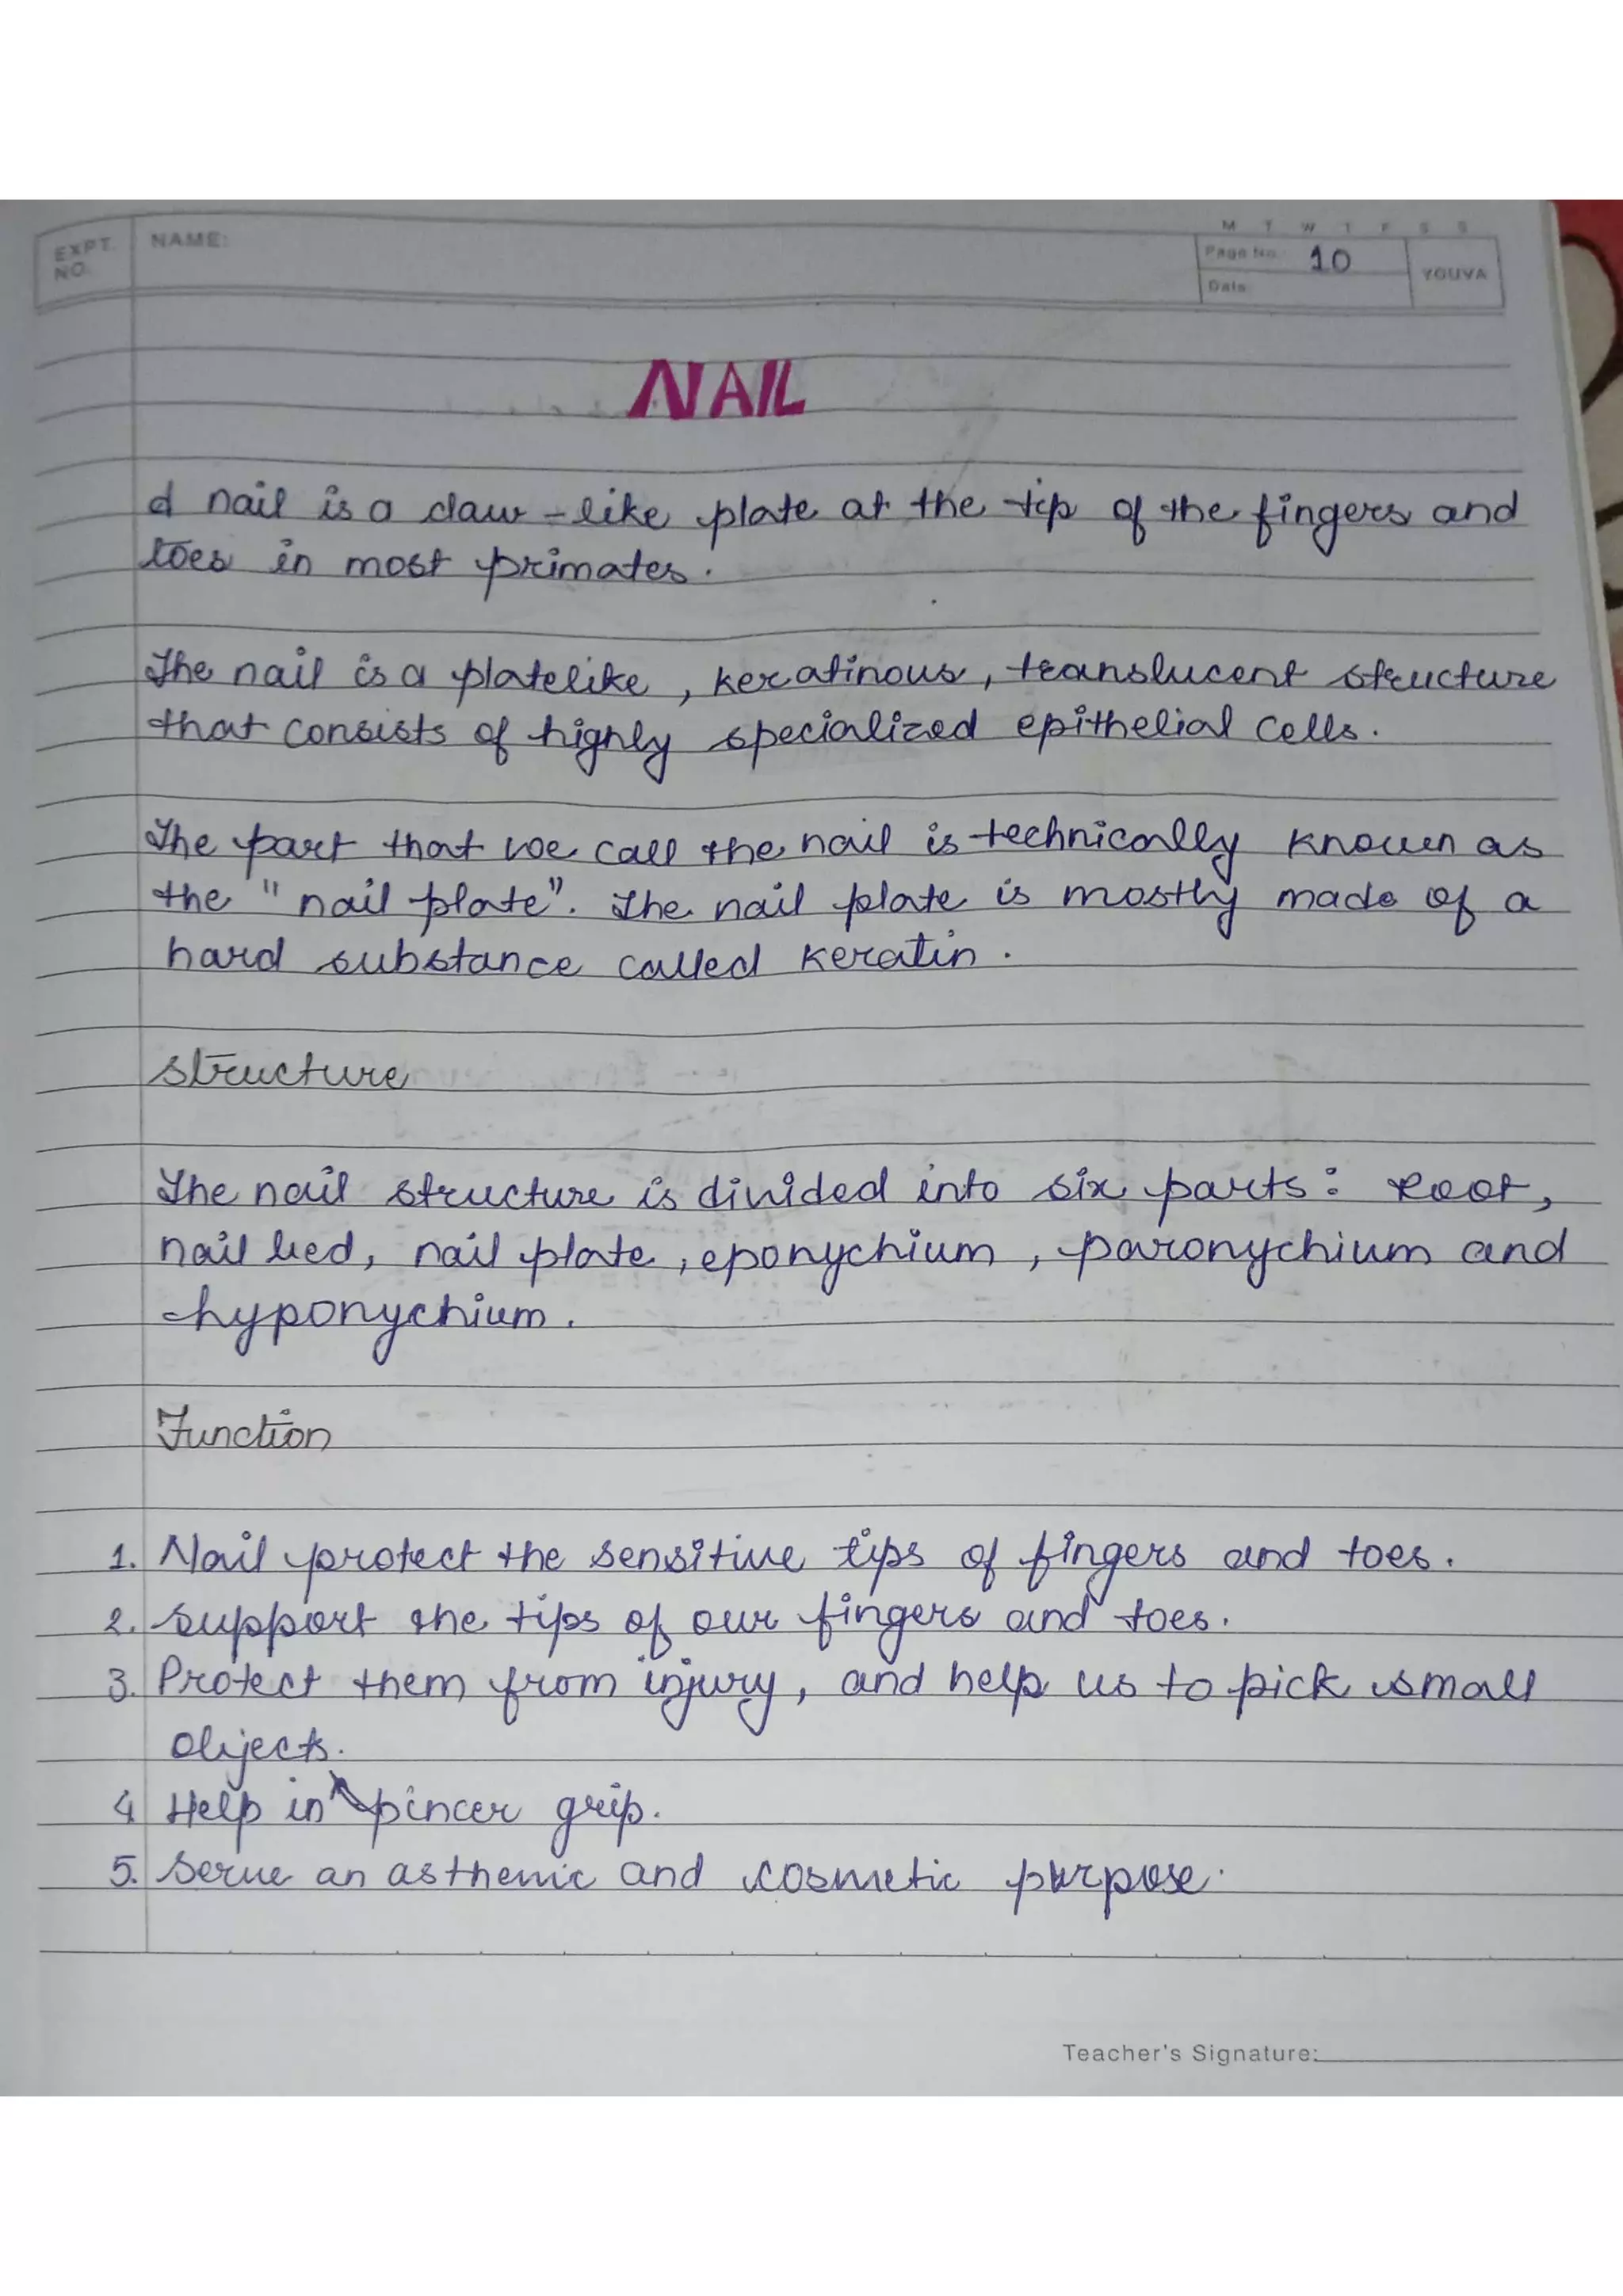 EXPT. NO.
NAME:
M T W T F S S
Page No. 10
Date
YOUVA
NAIL
A nail is a claw-like plate at the tip of the fingers and
toes in most primates.
The nail is a platelike, keratinous, translucent structure
that consists of highly specialized epithelial cells.
The part that we call the nail is technically known as
the "nail plate". The nail plate is mostly made of a
hard substance called keratin.
structure
The nail structure is divided into six parts: Root,
nail bed, nail plate, eponychium, paronychium and
hyponychium.
Function
1. Nail protect the sensitive tips of fingers and toes.
2. support the tips of our fingers and toes.
3. Protect them from injury, and help us to pick small
objects.
4 Help in pincer grip.
5. Serve an asthenic and cosmetic purpose.
Teacher's Signature: